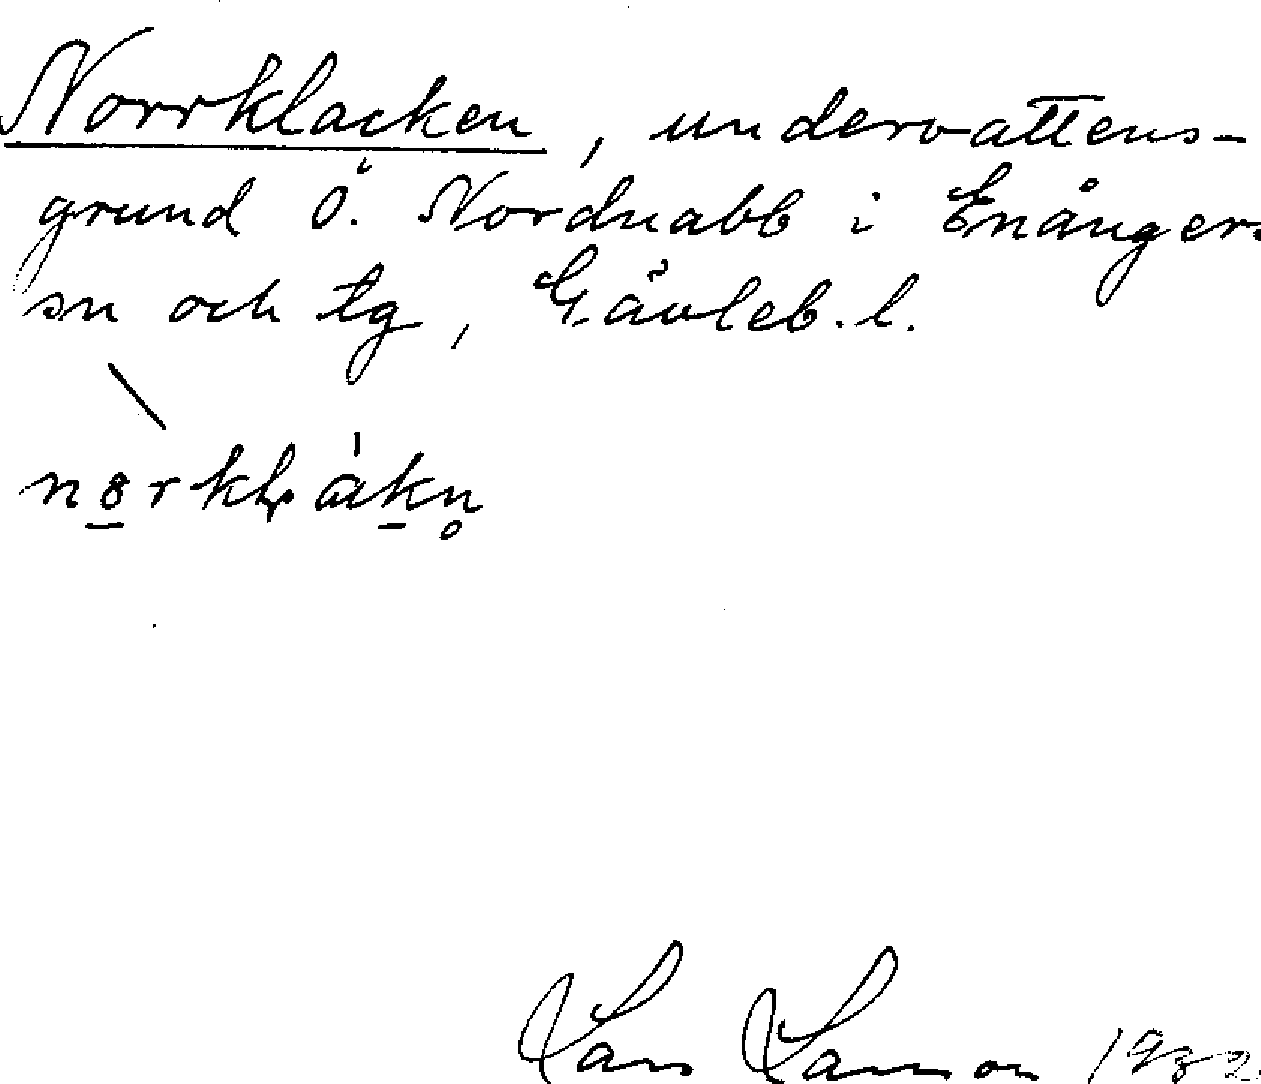 Norrklacken, undervattens-
grund ö. Nordnabb i Enångers
sn och tg, Gävleb. l.
Lars Larsson 1932